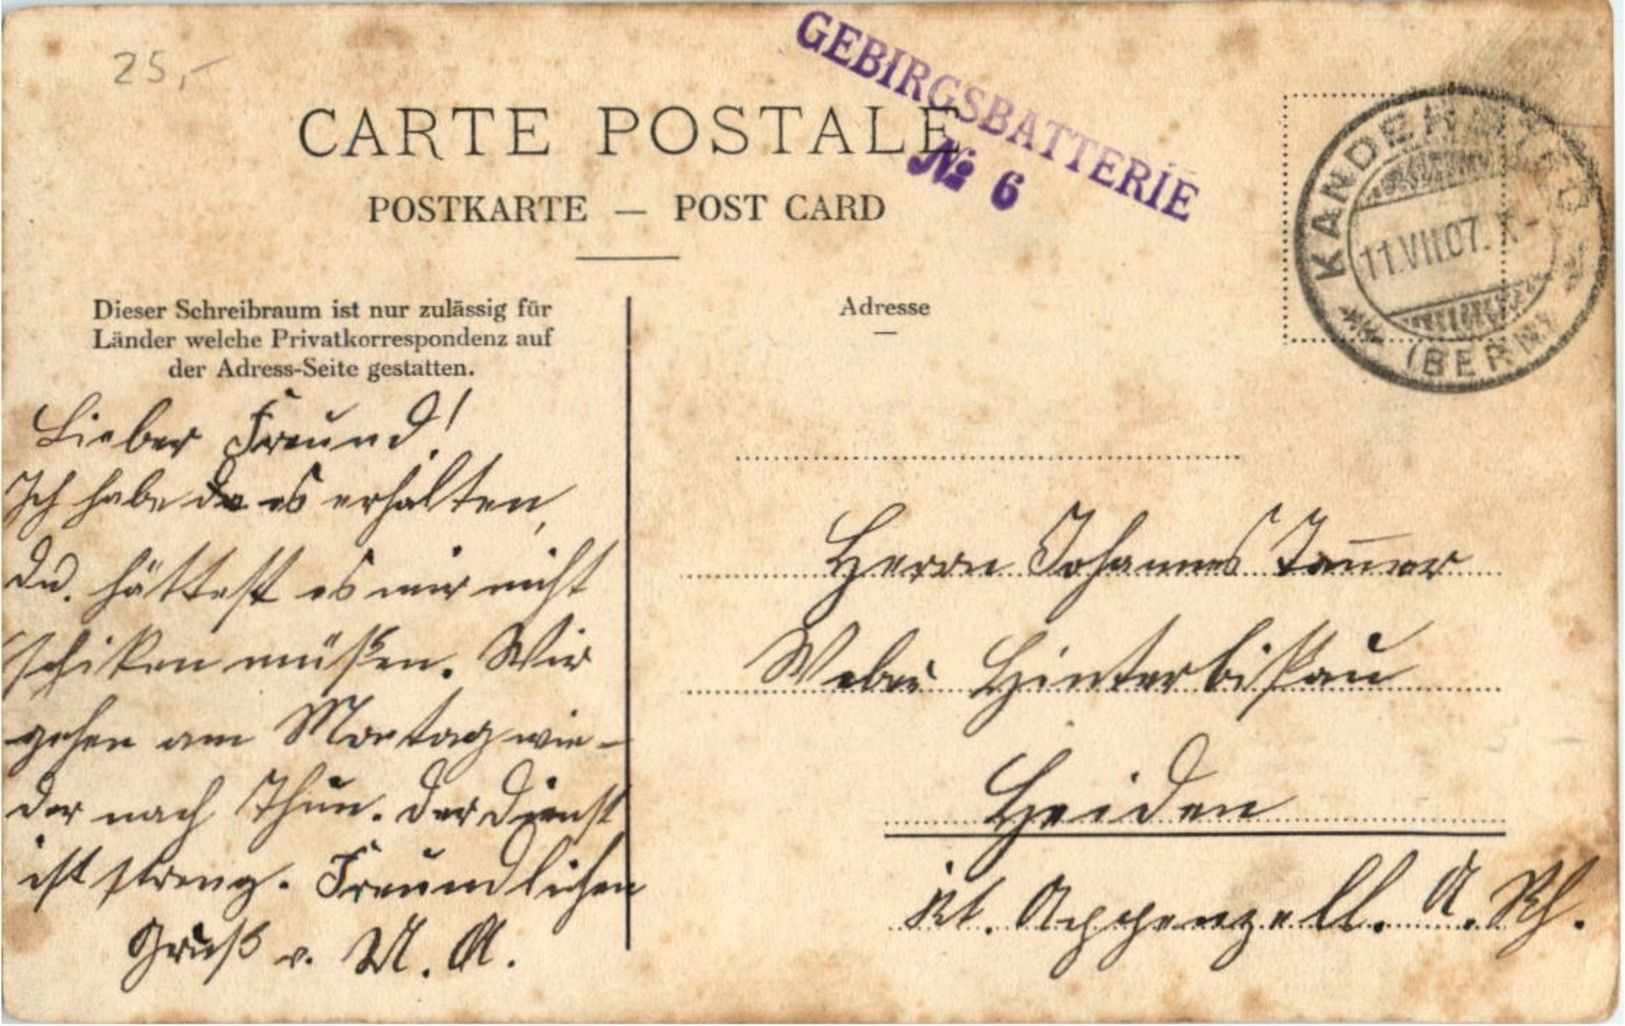 25,-
GEBIRGSBATTERIE
№ 6
CARTE POSTALE
POSTKARTE — POST CARD
KANDERSTEG
11.VII.07.X-
(BERN)
Dieser Schreibraum ist nur zulässig für
Länder welche Privatkorrespondenz auf
der Adress-Seite gestatten.
Adresse
Lieber Freund!
Ich habe es erhalten,
Du hättest es mir nicht
schiken müßen. Wir
gehen am Montag wie-
der nach Thun. Der Dienst
ist streng. Freundlichen
Gruß v. U. A.
Herrn Johannes
Weber Hinterbißau
Heiden
Kt. Appenzell. A. Rh.